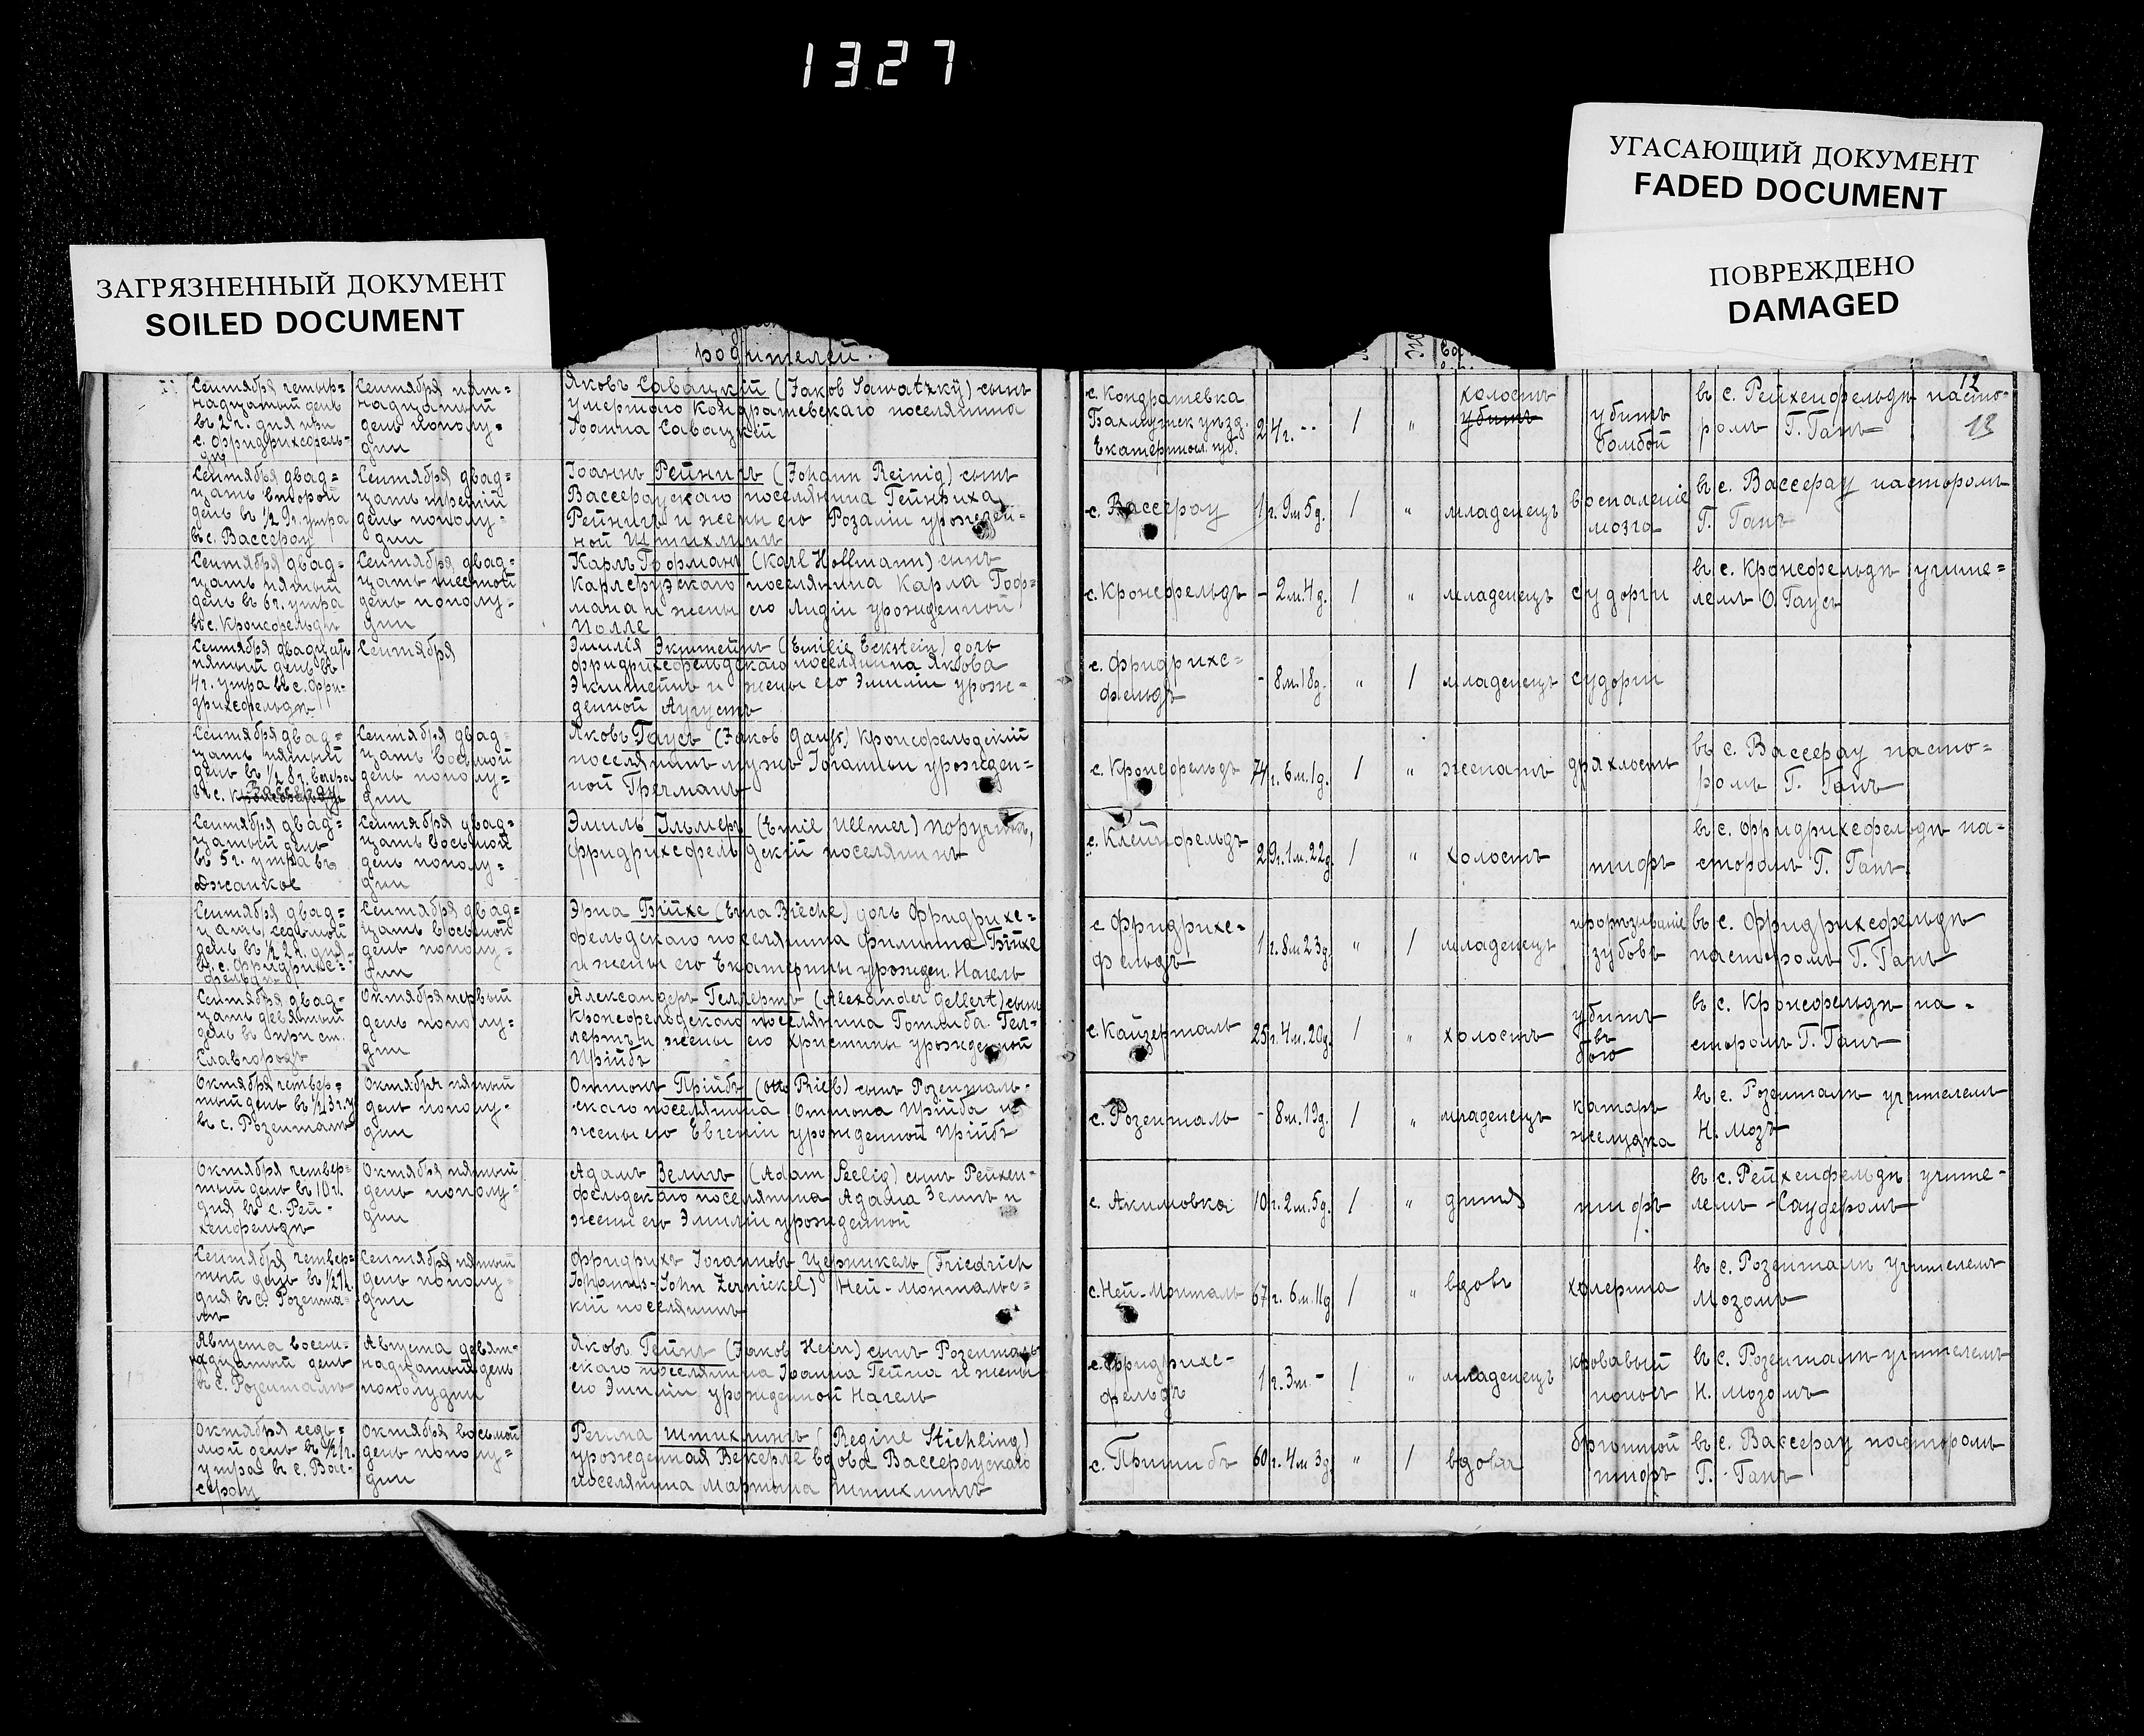 1327
УГАСАЮЩИЙ ДОКУМЕНТ
FADED DOCUMENT
ПОВРЕЖДЕНО
DAMAGED
ЗАГРЯЗНЕННЫЙ ДОКУМЕНТ
SOILED DOCUMENT
родителей.
12
13
Сентября четыр=
надцатый день
въ 2 ч. дня при
с. Фридрихсфель-
дѣ
Сентября пят=
надцатый
день пополу=
дни
Яковъ Савацкій (Jakob Sawatzky) сынъ
умершаго Кондратевскаго поселянина
Іоанна Савацкій
с. Кондратевка
Бахмутск уѣзд.
Екатериносл. губ.
24 г. - -
1
"
холостъ
убитъ
убитъ
бомбой
въ с. Рейхенфельдѣ пасто-
ромъ Г. Ганъ
Сентября двад=
цать второй
день въ ½ 9 ч. утра
въ с. Вассерау
Сентября двад=
цать третій
день пополу=
дни
Іоаннъ Рейнигъ (Johann Reinig) сынъ
Вассераускаго поселянина Гейнриха
Рейнигъ и жены его Розаліи урожден-
ной Штихлингъ
с. Вассерау
1 г. 9 м 5 д.
1
"
младенецъ
воспаленіе
мозга
въ с. Вассерау пасторомъ
Г. Ганъ
Сентября двад=
цать пятый
день въ 6 ч. утра
въ с. Кронсфельдѣ
Сентября двад=
цать шестой
день пополу=
дни
Карлъ Гофманъ (Karl Hoffmann) сынъ
Карлсруэскаго поселянина Карла Гоф=
мана и жены его Лидіи урожденной
Нолле
с. Кронсфельдъ
- 2 м. 4 д.
1
"
младенецъ
судорги
въ с. Кронсфельдѣ учите=
лемъ О. Гаусъ
Сентября двадцать
пятый день въ
4 ч. утра въ с. Фри-
дрихсфельдѣ
Сентября
Эмилія Экштейнъ (Emilie Eckstein) дочь
Фридрихсфельдскаго поселянина Якова
Экштейнъ и жены его Эмиліи урож-
денной Аугустъ
с. Фридрихс=
фельдъ
- 8 м. 18 д.
"
1
младенецъ
судорги
Сентября двад=
цать пятый
день въ ½ 8 ч. вечера
Вассерау
въ с. Кронсфельдѣ
Сентября двад=
цать восьмой
день пополу=
дни
Яковъ Гаусъ (Jakob Gauß) Кронсфельдскій
поселянинъ мужъ Іоганны урожден=
ной Гречманъ
с. Кронсфельдъ
74 г. 6 м. 1 д.
1
"
женатъ
дряхлость
въ с. Вассерау пасто=
ромъ Г. Ганъ
Сентября двад=
цатый день
въ 5 ч. утра въ
Джанкое
Сентября двад=
цать восьмой
день пополу=
дни
Эмиль Ульмеръ (Emil Ullmer) поручикъ,
Фридрихсфельдскій поселянинъ
с. Клейнфельдъ
29 г. 1 м. 22 д.
1
"
холостъ
тифъ
въ с. Фридрихсфельдѣ па=
сторомъ Г. Ганъ
Сентября двад=
цать седьмой
день въ ½ 2 ч. дня
въ с. Фридрихс=
фельдѣ
Сентября двад=
цать восьмой
день пополу=
дни
Эрна Брихе (Erna Brieche) дочь Фридрихс=
фельдскаго поселянина Филиппа Брихе
и жены его Екатерины урожден. Нагель
с Фридрихс=
фельдъ
1 г. 8 м 23 д.
"
1
младенецъ
прорѣзываніе
зубовъ
въ с. Фридрихсфельдѣ
пасторомъ Г. Ганъ
Сентября двад=
цать девятый
день при ст.
Славгородъ
Октября первый
день пополу=
дни
Александеръ Геллертъ (Alexander Gellert) сынъ
Кронсфельдскаго поселянина Готлиба Гел-
лертъ и жены его Христины урожденной
Прійбъ
с. Кайзерталь
25 г. 4 м. 20 д.
1
"
холостъ
убитъ
въ
бою
въ с. Кронсфельдѣ па=
сторомъ Г. Ганъ
Октября четвер=
тый день въ ½ 3 ч. у
въ с. Розенталѣ
Октября пятый
день пополу=
дни
Оттонъ Прійбъ (Otto Prieb) сынъ Розенталь-
скаго поселянина Оттона Прійба и
жены его Евгеніи урожденной Прійбъ
с. Розенталь
- 8 м. 19 д.
1
"
младенецъ
катаръ
желудка
въ с. Розенталѣ учителемъ
Н. Мозъ
Октября четвер=
тый день въ 10 ч.
дня въ с. Рей-
хенфельдѣ
Октября пятый
день пополу=
дни
Адамъ Зелигъ (Adam Seelig) сынъ Рейхен-
фельдскаго поселянина Адама Зелигъ и
жены его Эмиліи урожденной
с. Акимовка
10 г. 2 м. 5 д.
1
"
дитя
тифъ
въ с. Рейхенфельдѣ учите-
лемъ Саудеромъ
Сентября четвер-
тый день въ ½ 1 ч.
дня въ с. Розента-
лѣ
Сентября пятый
день пополу=
дни
Фридрихъ Іоганновъ Церникель (Friedrich
Johannes-Sohn Zernickel) Ней-Монтальс=
кій поселянинъ
с. Ней-Монталь
67 г. 6 м. 11 д
1
"
вдовъ
холерина
въ с. Розенталѣ учителемъ
Мозомъ
Августа восем-
надцатый день
въ с. Розенталѣ
Августа девят-
надцатый день
пополудни
Яковъ Гейнъ (Jakob Hein) сынъ Розенталь
скаго поселянина Іоанна Гейна и жены
его Эмиліи урожденной Нагель
с. Фридрихс-
фельдъ
1 г. 3 м. -
1
"
младенецъ
кровавый
поносъ
въ с. Розенталѣ учителемъ
Н. Мозомъ
Октября седь=
мой день въ ½ 1 ч.
утра въ с. Вас-
серау
Октября восьмой
день пополу=
дни
Регина Штихлингъ (Regine Stichling)
урожденная Векерле вдова Вассераускаго
поселянина Мартина Штихлингъ
с. Пришибъ
60 г. 4 м 3 д
"
1
вдова
брюшной
тифъ
въ с. Вассерау пасторомъ
Г. Ганъ